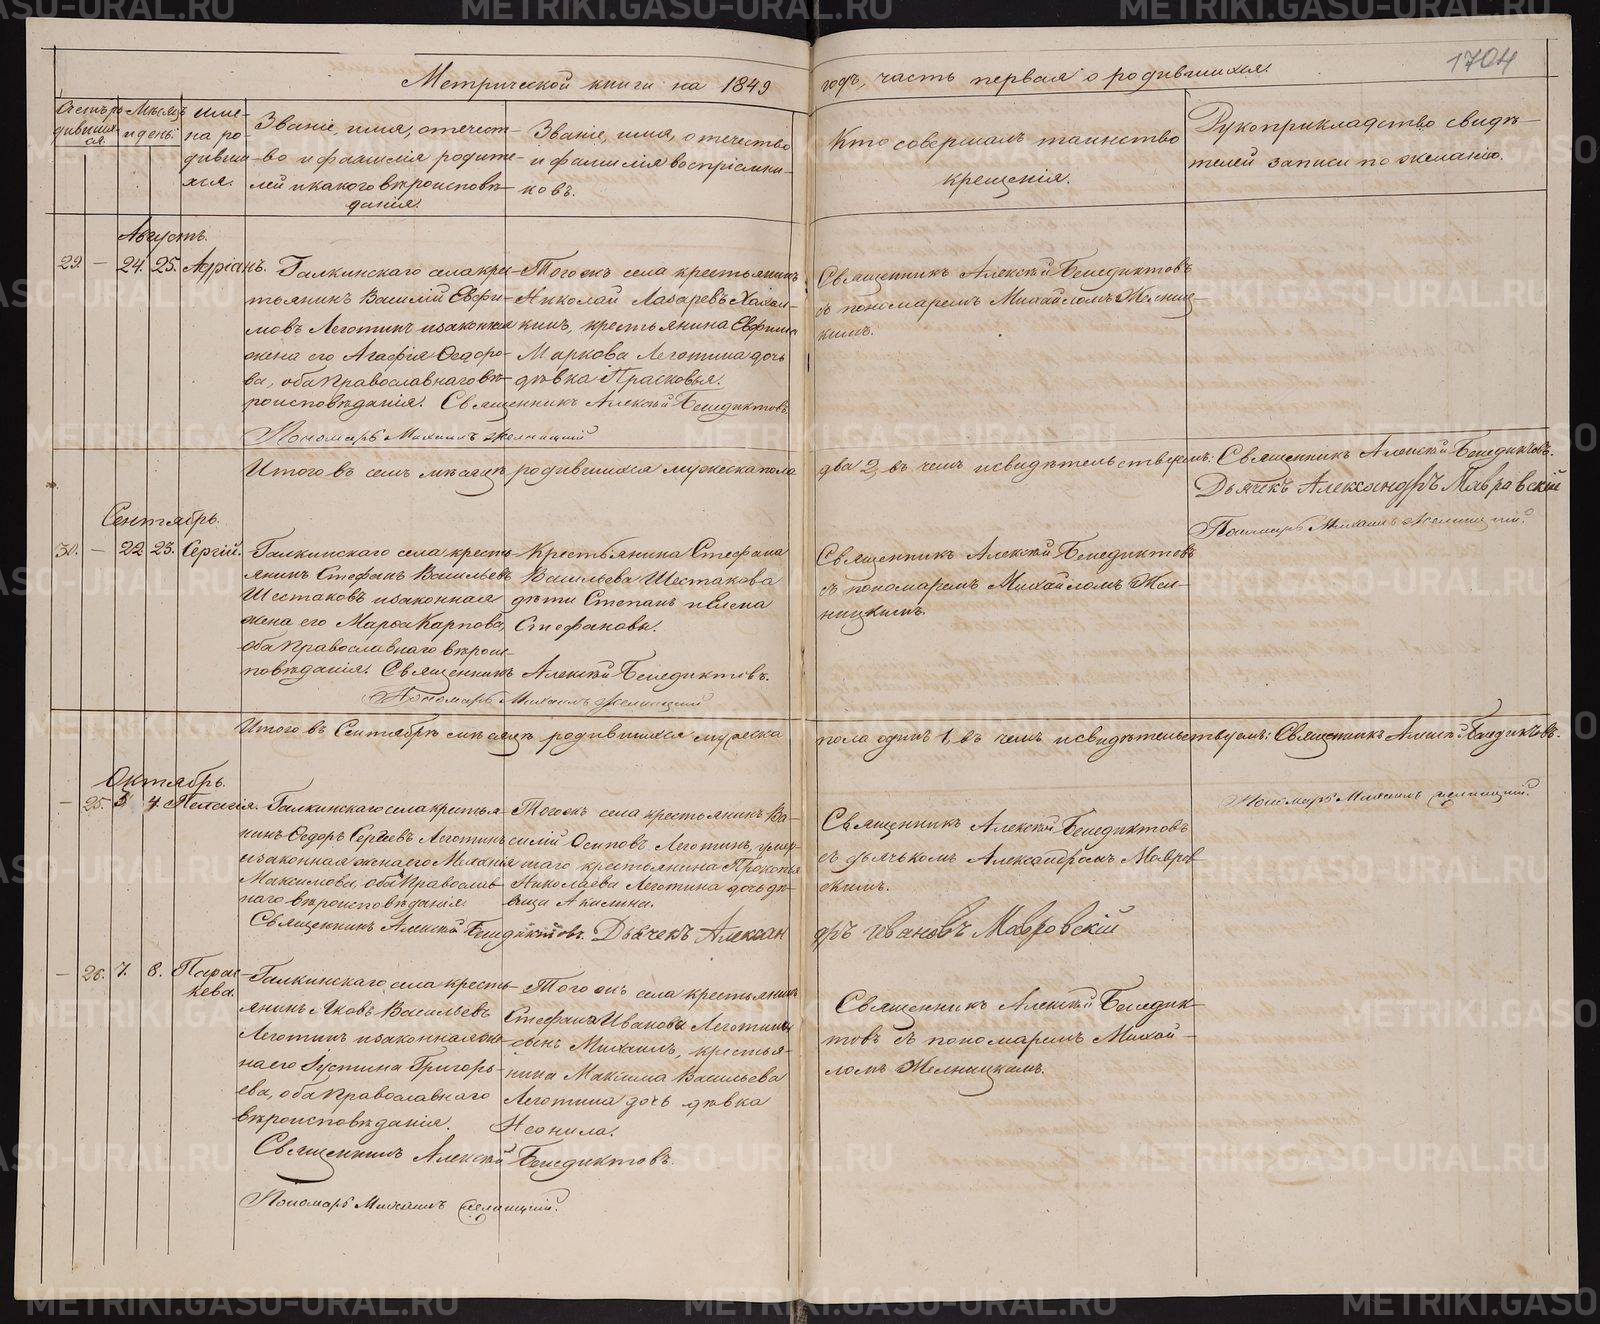 Метрической книги на 1849 годъ, часть первая о родившихся.
1704
Счетъ ро-
дивших-
ся.
Мѣсяцъ
и день:
Име-
на ро-
дивши-
хся.
Званіе, имя, отечест-
во и фамилія родите-
лей и какого вѣроисповѣ-
данія.
Званіе, имя, отечество
и фамилія воспріемни-
ковъ.
Кто совершалъ таинство
крещенія.
Рукоприкладство свидѣ-
телей записи по желанію.
Августъ.
29. — 24. 25. Адріанъ.
Галкинскаго села кре-
стьянинъ Василій Ефи-
мовъ Леготинъ и законная
жена его Агафія Ѳедоро-
ва, оба Православнаго вѣ-
роисповѣданія. Священникъ Алексѣй Бенедиктовъ
Пономарь Михаилъ Желницкій
Тогожъ села крестьянинъ
Николай Лазаревъ
кинъ, крестьянина Ефима
Маркова Леготина дочь
дѣвка Прасковья.
Священникъ Алексѣй Бенедиктовъ
съ пономаремъ Михайломъ Желниц-
кимъ.
Итого въ семъ мѣсяцѣ родившихся мужеска пола два 2, въ чемъ и свидѣтельствуемъ: Священникъ Алексѣй Бенедиктовъ.
Дьячекъ Александръ Мавровскій
Пономарь Михаилъ Желницкій.
Сентябрь.
30. — 22. 23. Сергій.
Галкинскаго села кресть-
янинъ Стефанъ Васильевъ
Шестаковъ и законная
жена его Марѳа Карпова,
оба Православнаго вѣроис-
повѣданія. Священникъ Алексѣй Бенедиктовъ.
Пономарь Михаилъ Желницкій
Крестьянина Стефана
Васильева Шестакова
дѣти Степанъ и Елена
Стефановы.
Священникъ Алексѣй Бенедиктовъ
съ пономаремъ Михайломъ Жел-
ницкимъ.
Итого въ Сентябрѣ мѣсяцѣ родившихся мужеска пола одинъ 1, въ чемъ и свидѣтельствуемъ: Священникъ Алексѣй Бенедиктовъ.
Пономарь Михаилъ Желницкій.
Октябрь.
— 25. 3 4. Пелагія.
Галкинскаго села крестья-
нинъ Ѳедоръ Сергѣевъ Леготинъ
и законная жена его Меланія
Максимова, оба Православ-
наго вѣроисповѣданія.
Священникъ Алексѣй Бенедиктовъ. Дьячекъ Александръ Ивановъ Мавровскій
Тогожъ села крестьянинъ Ва-
силій Осиповъ Леготинъ, умер-
шаго крестьянина Прокопья
Николаева Леготина дочь дѣ-
вица Акилина.
Священникъ Алексѣй Бенедиктовъ
съ дьячкомъ Александромъ Мавров-
скимъ.
— 26. 7. 8. Парас-
кева.
Галкинскаго села кресть-
янинъ Яковъ Васильевъ
Леготинъ и законная же-
на его Іустина Григорь-
ева, оба Православнаго
вѣроисповѣданія.
Священникъ Алексѣй Бенедиктовъ.
Пономарь Михаилъ Желницкій.
Того жъ села крестьянина
Стефана Иванова Леготина
сынъ Михаилъ, крестья-
нина Максима Васильева
Леготина дочь дѣвка
Неонила.
Священникъ Алексѣй Бенедик-
товъ съ пономаремъ Михай-
ломъ Желницкимъ.
METRIKI.GASO-URAL.RU